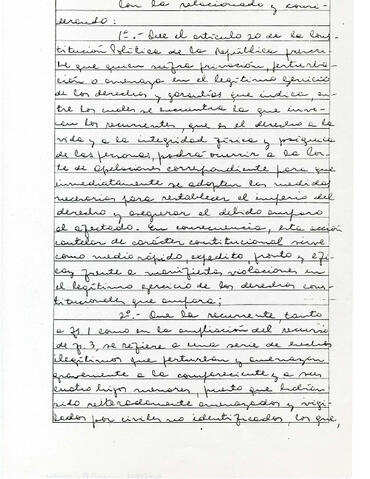 Con lo relacionado y consi-
derando:
1º.- Que el artículo 20 de la Cons-
titución Política de la República prescri-
be que quien sufra privación, perturba-
ción o amenaza en el legítimo ejercicio
de los derechos y garantías que indica, en-
tre los cuales se encuentra la que invo-
can los recurrentes, que es el derecho a la
vida y a la integridad física y psíquica
de las personas, podrá ocurrir a la Cor-
te de Apelaciones correspondiente para que
inmediatamente se adopten las medidas
necesarias para restablecer el imperio del
derecho y asegurar el debido amparo
al afectado. En consecuencia, esta acción
cautelar de carácter constitucional sirve
como medio rápido, expedito, pronto y efi-
caz frente a manifiestas violaciones en
el legítimo ejercicio de los derechos cons-
titucionales que ampara;
2º.- Que la recurrente tanto
a fs. 1 como en la ampliación del recurso
de fs. 3, se refiere a una serie de hechos
ilegítimos que perturban y amenazan
gravemente a la compareciente y a sus
cuatro hijos menores, puesto que habían
sido reiteradamente amenazados y vigi-
lados por civiles no identificados, los que,